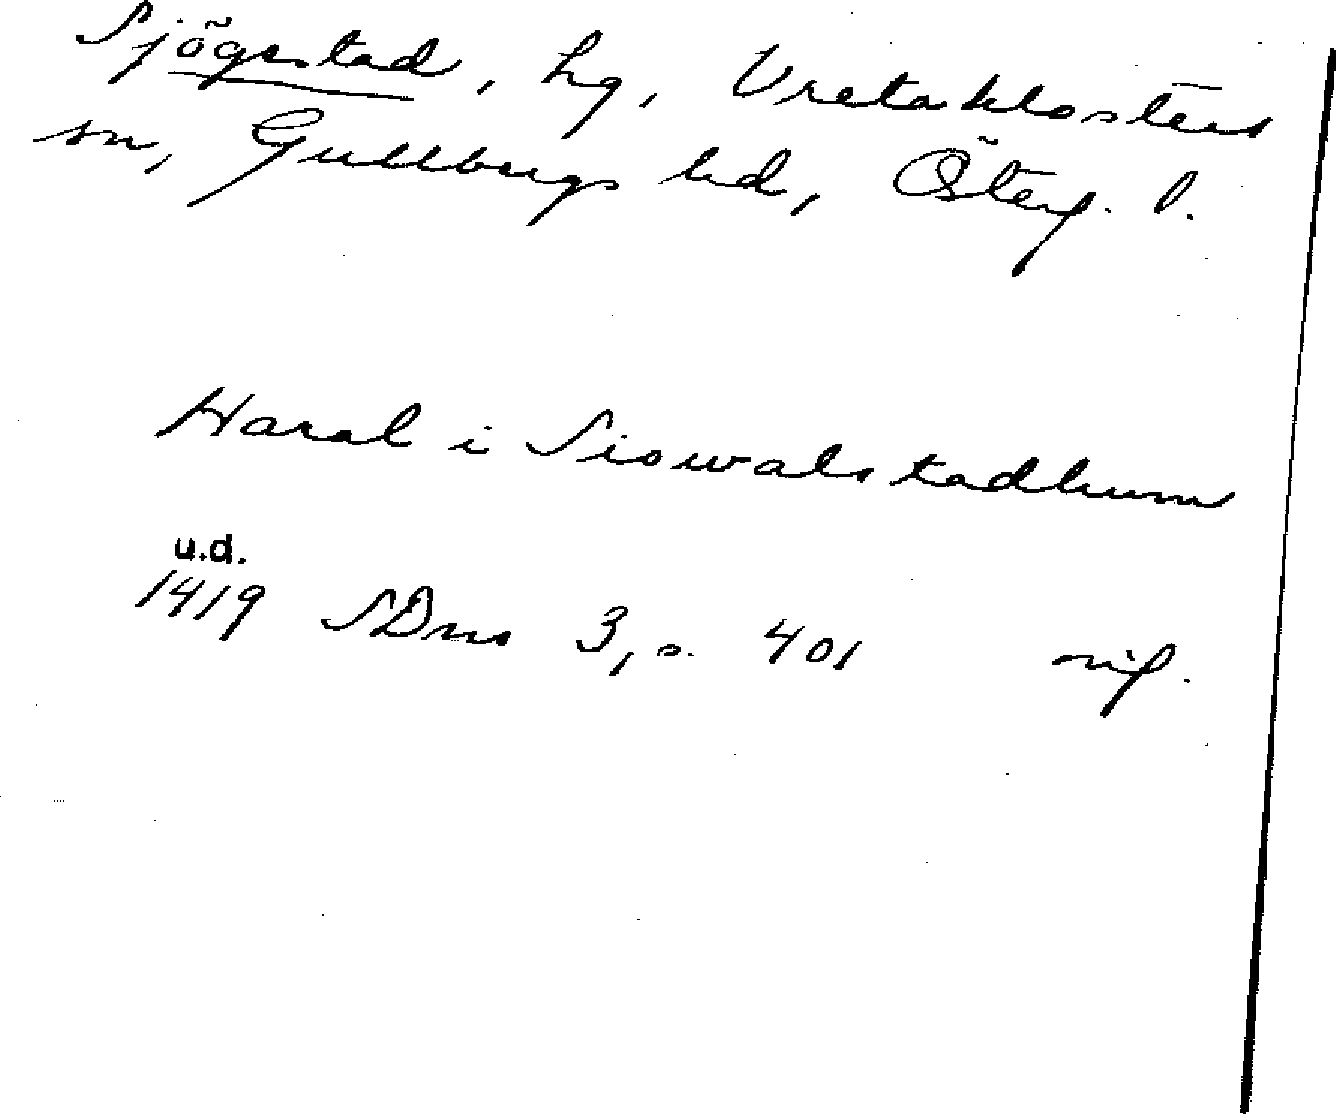 Sjögestad, hg, Vretaklosters
sn, Gullbergs hd, Österg. l.
Haral i Siowalstadhum
u.d.
1419 SDns 3, s. 401